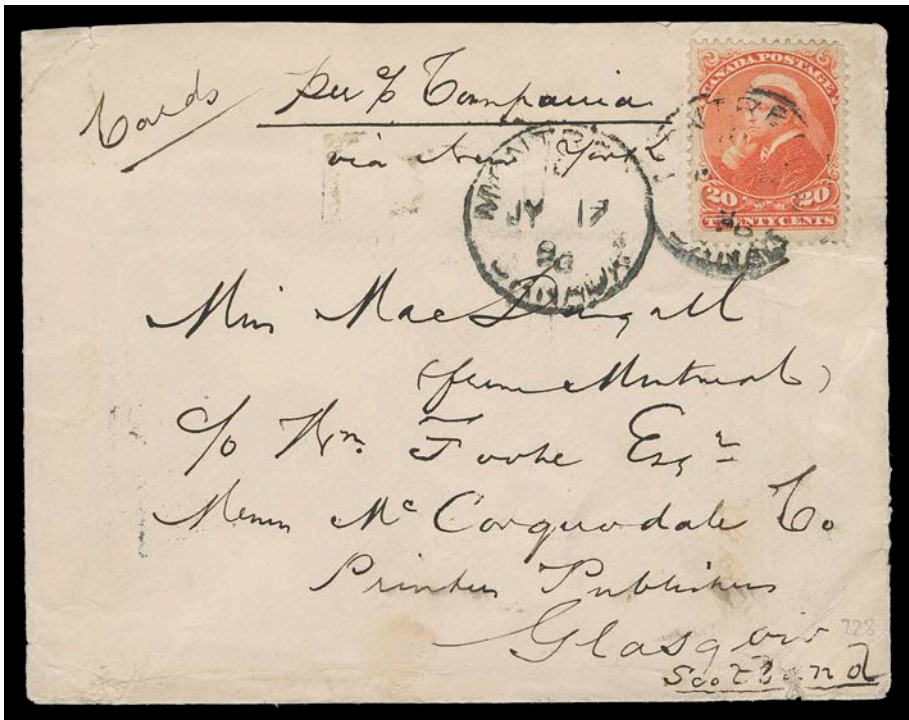 Cards per S/S Campania
via New York
CANADA POSTAGE
20 20
TWENTY CENTS
MONTREAL
JY 17
96
CANADA
Miss MacDougall
(from Montreal)
c/o Wm. Foote Esqr
Messrs Mc Corquodale & Co
Printers Publishers
Glasgow
Scotland
728